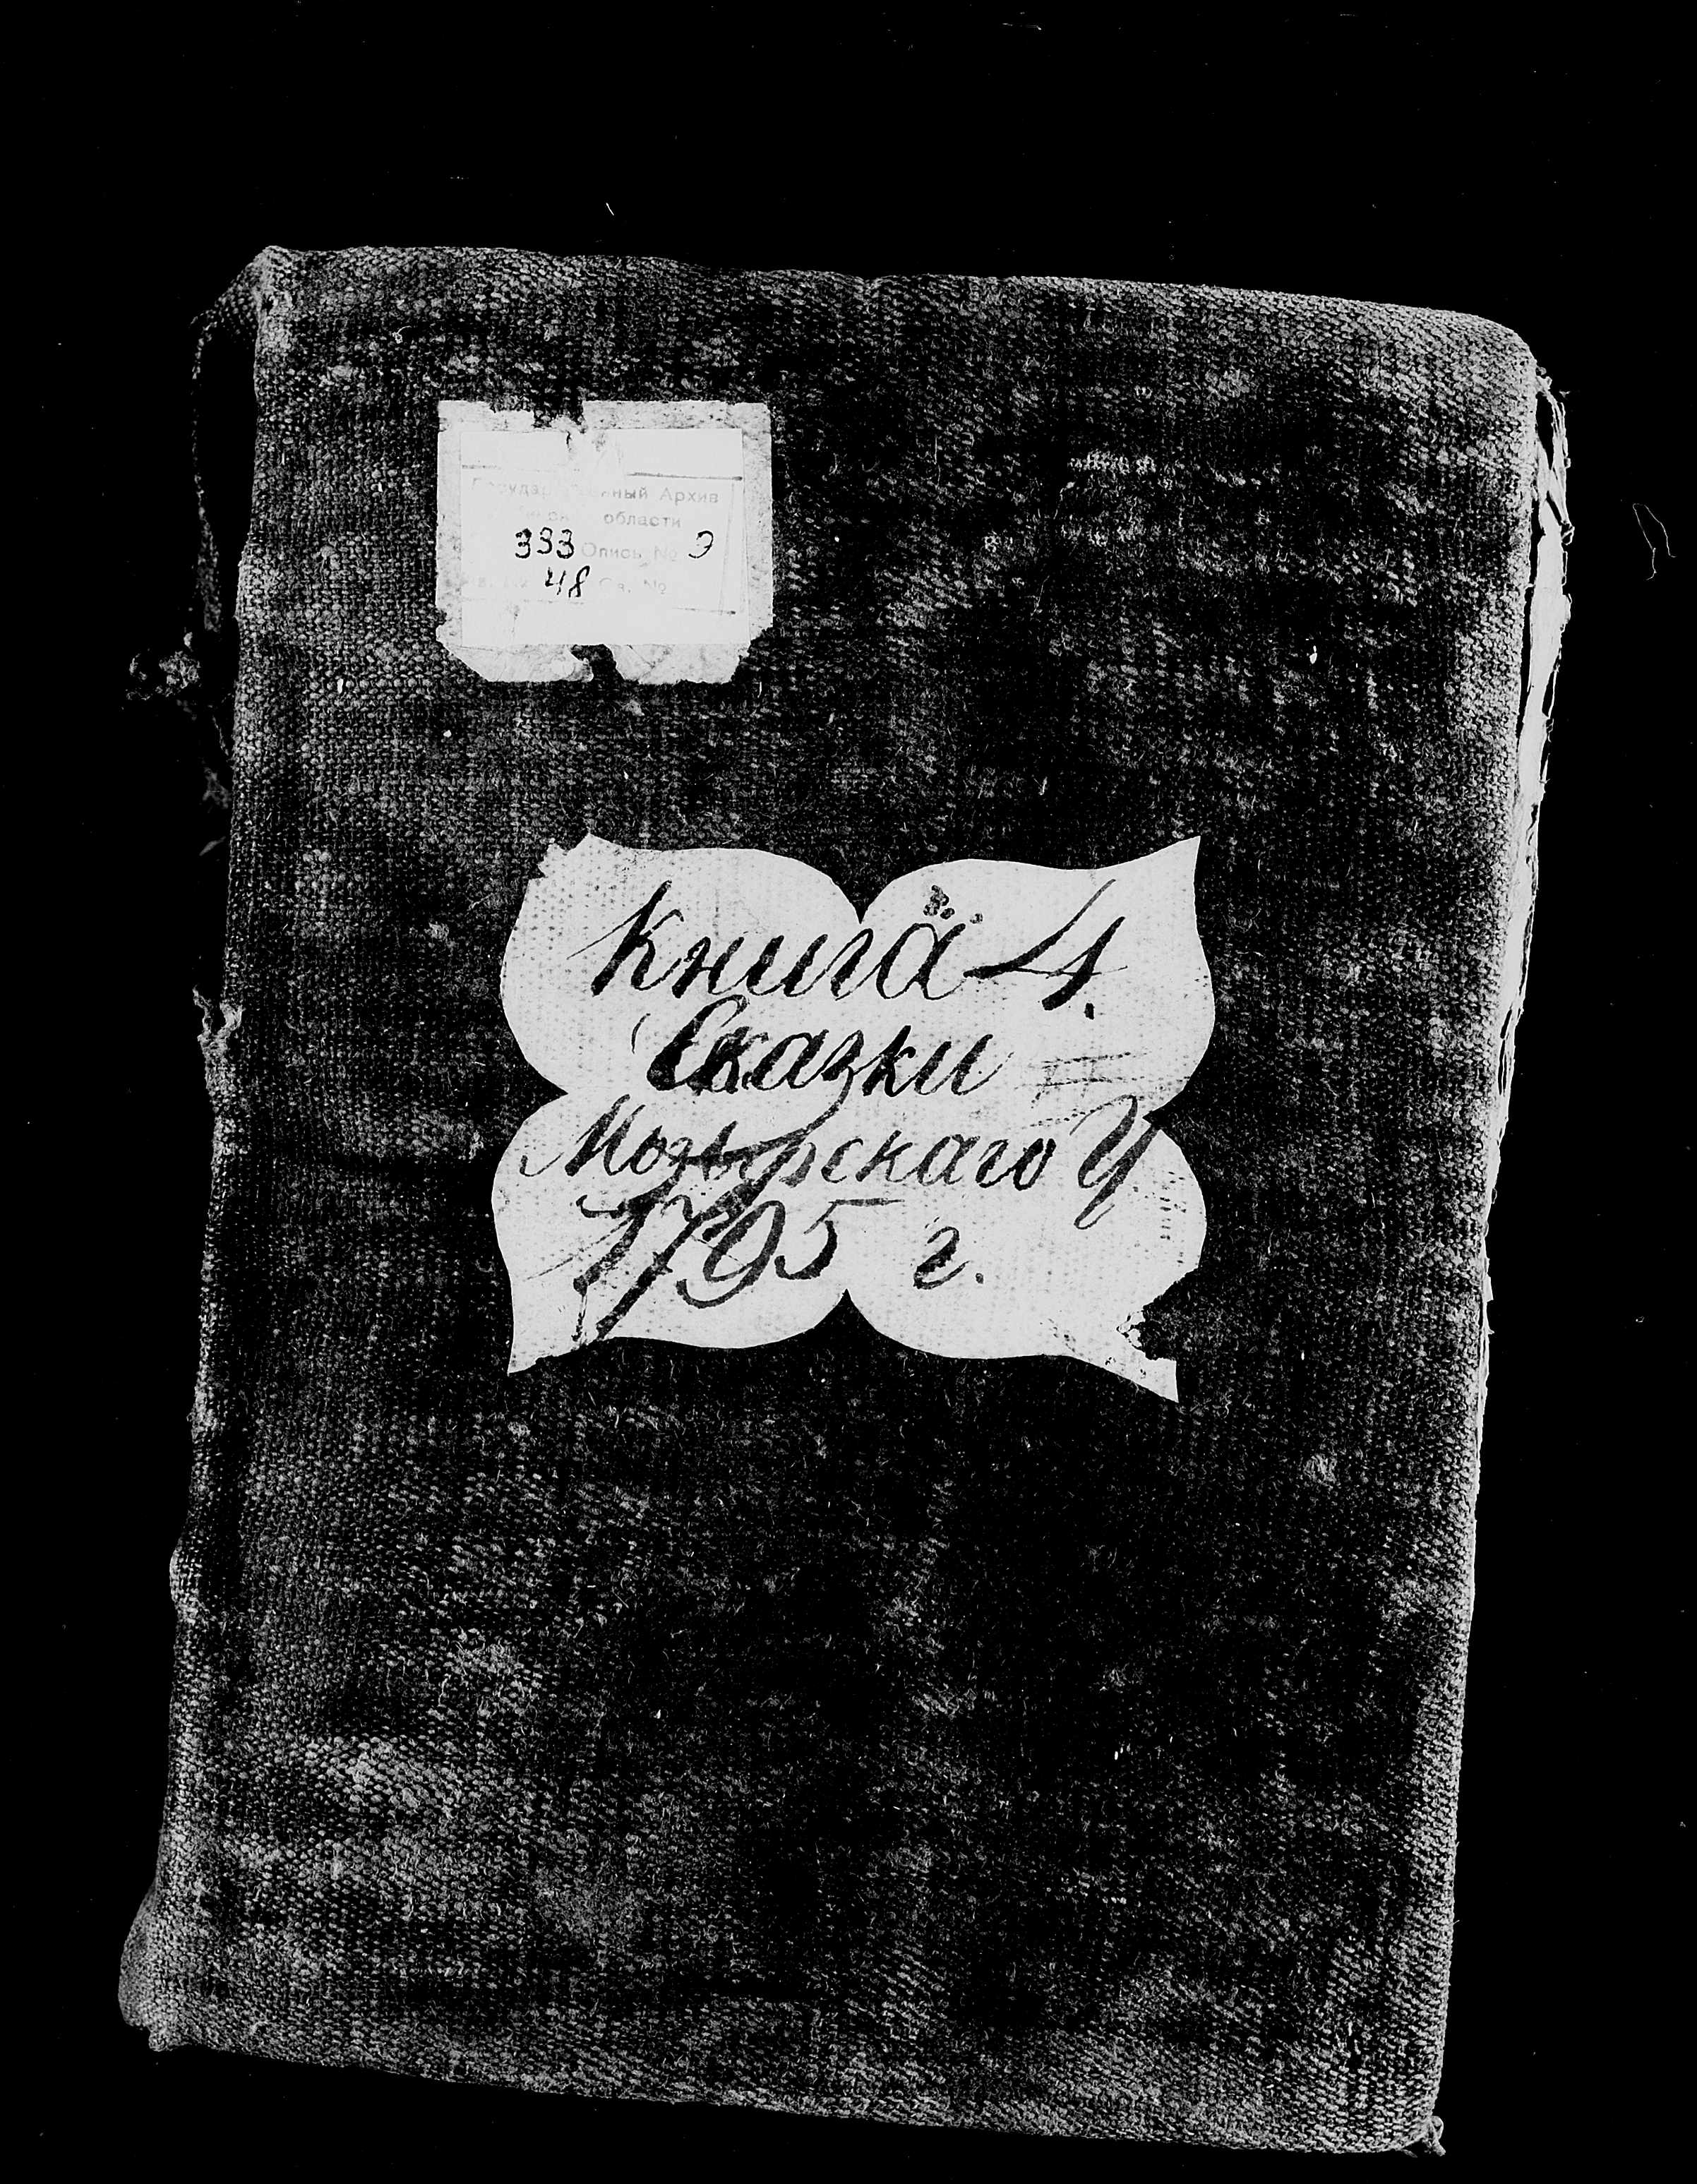 Архив
области
333 Опись № 9
48 Св. №
Книга 4.
Сказки
Мозырскаго У.
1795 г.